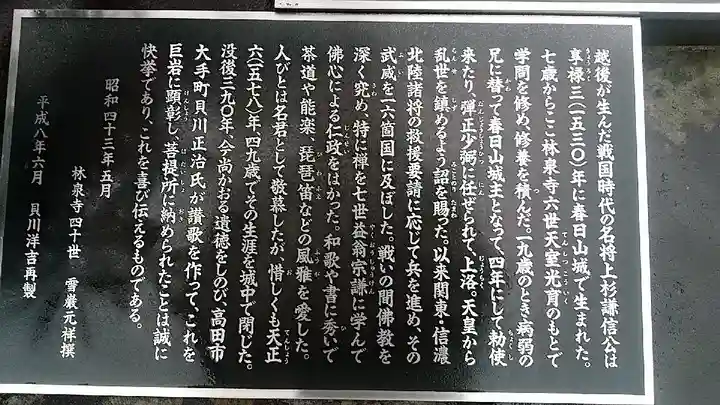 越後が生んだ戦国時代の名将上杉謙信公は
享禄三(一五三〇)年に春日山城で生まれた。
七歳からここ林泉寺六世天室光育のもとで
学問を修め、修養を積んだ。一九歳のとき病弱の
兄に替って春日山城主となって、四年にして勅使
来たり、弾正少弼に任ぜられて、上洛。天皇から
乱世を鎮めるよう詔を賜った。以来関東・信濃
北陸諸将の救援要請に応じて兵を進め、その
武威を一六箇国に及ぼした。戦いの間佛教を
深く究め、特に禅を七世益翁宗謙に学んで
佛心による仁政をはかった。和歌や書に秀いで
茶道や能楽、琵琶笛などの風雅を愛した。
人びとは名君として敬慕したが、惜しくも天正
六(一五七八)年、四九歳でその生涯を城中で閉じた。
没後三九〇年、今尚かおる遺徳をしのび、高田市
大手町貝川正治氏が讃歌を作って、これを
巨岩に顕彰し、菩提所に納められたことは誠に
快挙であり、これを喜び伝えるものである。
昭和四十三年五月
林泉寺四十世 雪巌元祥撰
平成八年六月 貝川洋吉再製